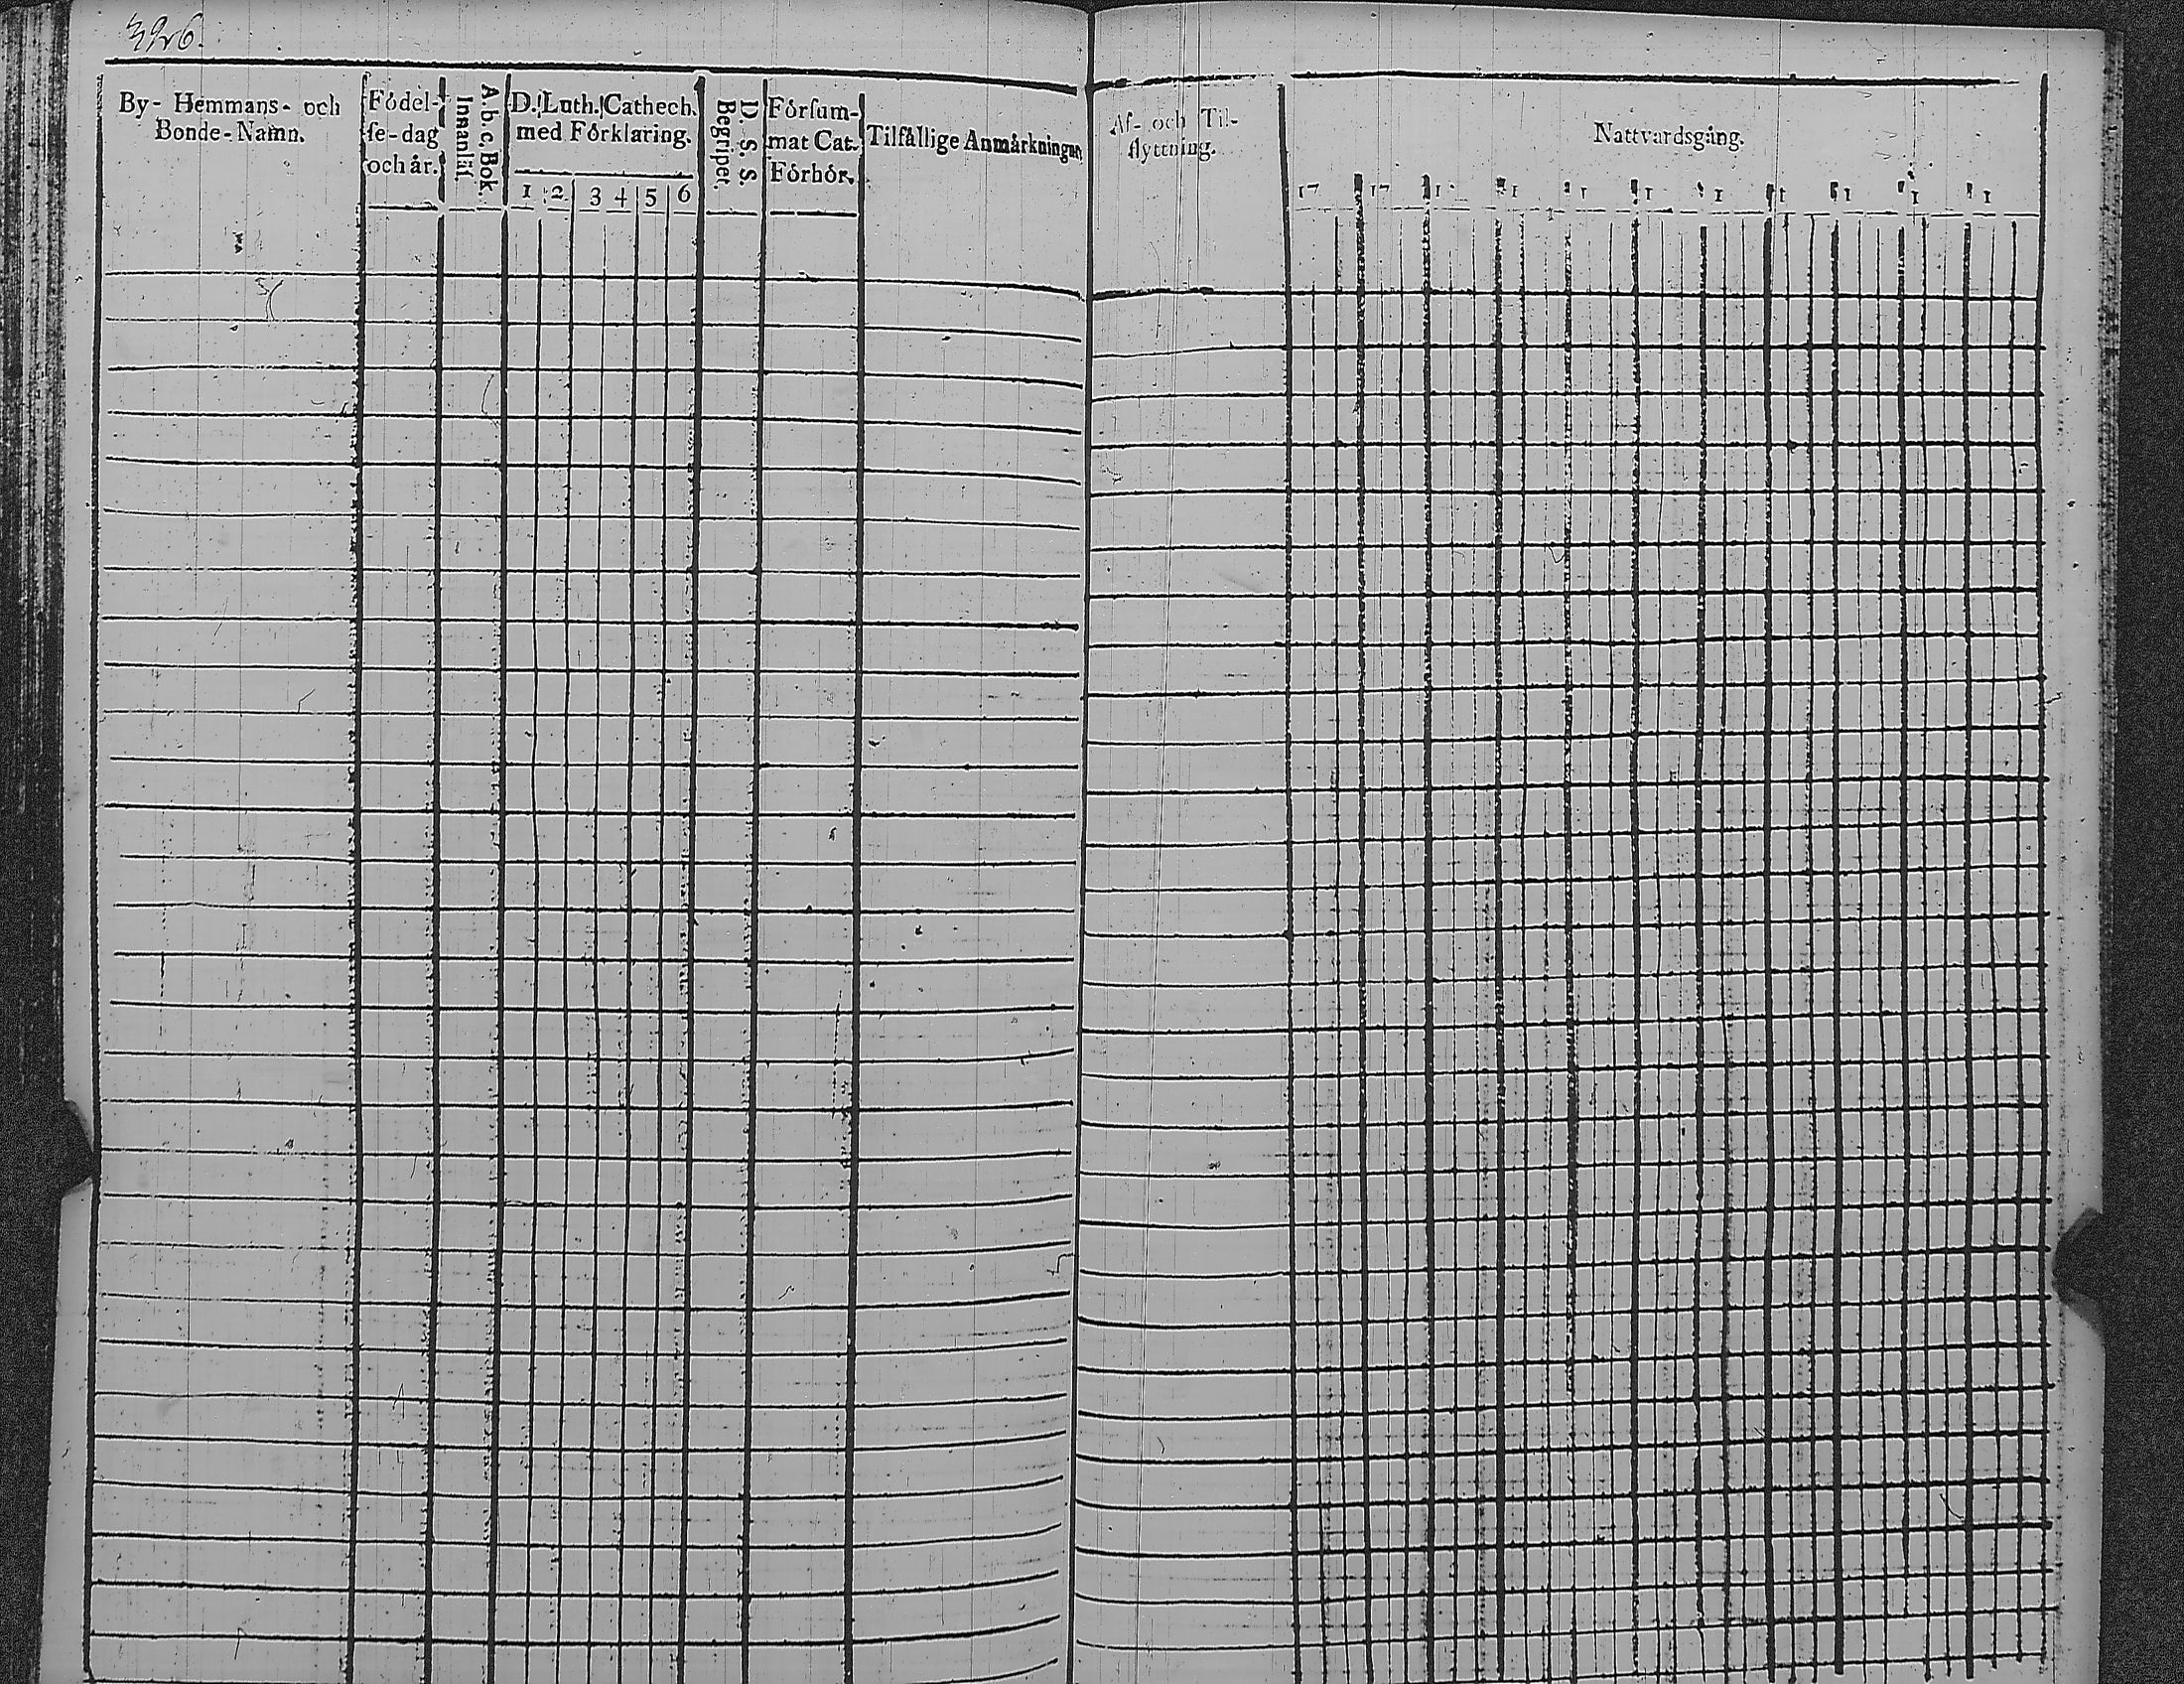 326.
By- Hemmans- och
Bonde-Namn.
Födel-
ſe-dag
och år.
A.b.c.Bok.
Innanläſ.
D. Luth. Cathech.
med Förklaring.
1 2 3 4 5 6
D. S. S.
Begripet.
Förſum-
mat Cat.
Förhör.
Tilfällige Anmärkningar
Af- och Til-
flyttning.
Nattvardsgång.
17 17 1 1 1 1 1 1 1 1 1